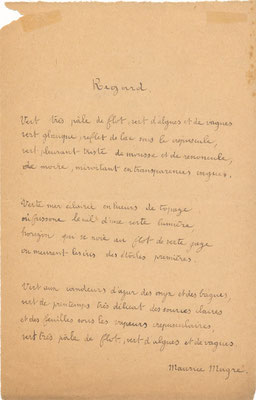 Regard
Vert très pâle de flot, vert d'algues et de vagues
vert glauque, reflet de lac sous le crépuscule,
vert pleurant triste de mousse et de renoncule,
de moire, miroitant en transparences vagues.
Verte mer éclairée en lueurs de topaze
où frissonne le nil d'une verte lumière
horizon qui se noie au flot de verte gaze
où meurent les iris des étoiles premières.
Vert aux candeurs d'azur des onyx et des bagues,
vert de printemps très délicat des soirées claires
et des feuilles sous les vapeurs crépusculaires,
vert très pâle de flot, vert d'algues et de vagues.
Maurice Magre.